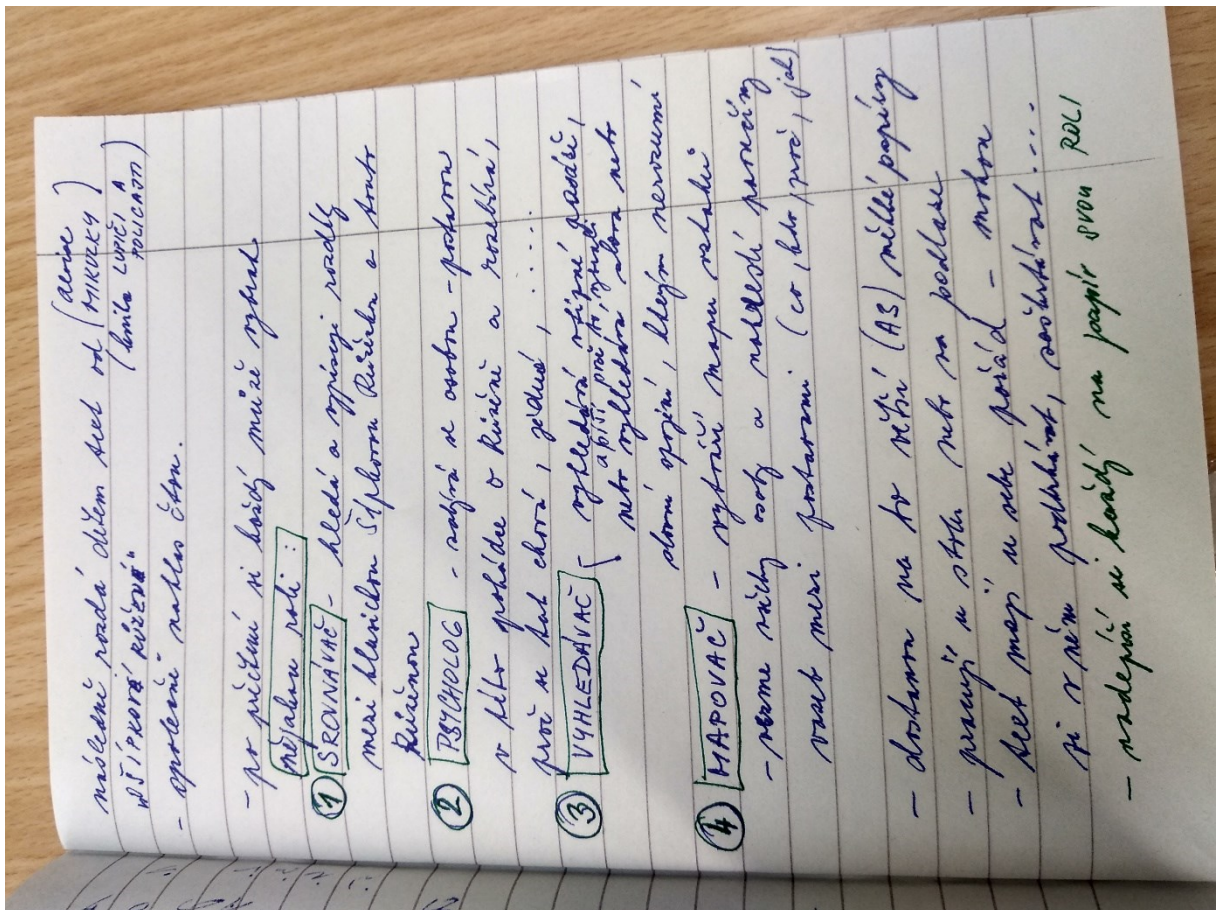 následně rozdá dětem text od (Aliny MIKULKY)
„O ŠÍPKOVÉ RŮŽENĚ" (kniha LUPIČI A POLICAJTI)
- společně nahlas čtou.
- po přečtení si každý může vybrat
nějakou roli:
① SROVNÁVAČ - hledá a vypisuje rozdíly
mezi klasickou Šípkovou Růženkou a touto
Růženou
② PSYCHOLOG - zabývá se osobou - postavou
v této pohádce o Růženě a rozebírá,
proč se tak chová, jedná, .....
③ VYHLEDÁVAČ { vyhledává vtipné pasáže,
a píší proč to,
nebo vyhledává slova nebo
slovní spojení, kterým nerozumí
④ MAPOVAČ - vytváří mapu vztahů
- vezme všechny osoby a nakreslí
vazeb mezi postavami (co, kdo, proč, jak)
- dostanou na to větší (A3) měkké papíry
- pracují u stolu nebo na podlaze
- text mají u sebe pořád - mohou
si v něm podtrhávat, .....
- nadepíší si každý na papír svou ROLI